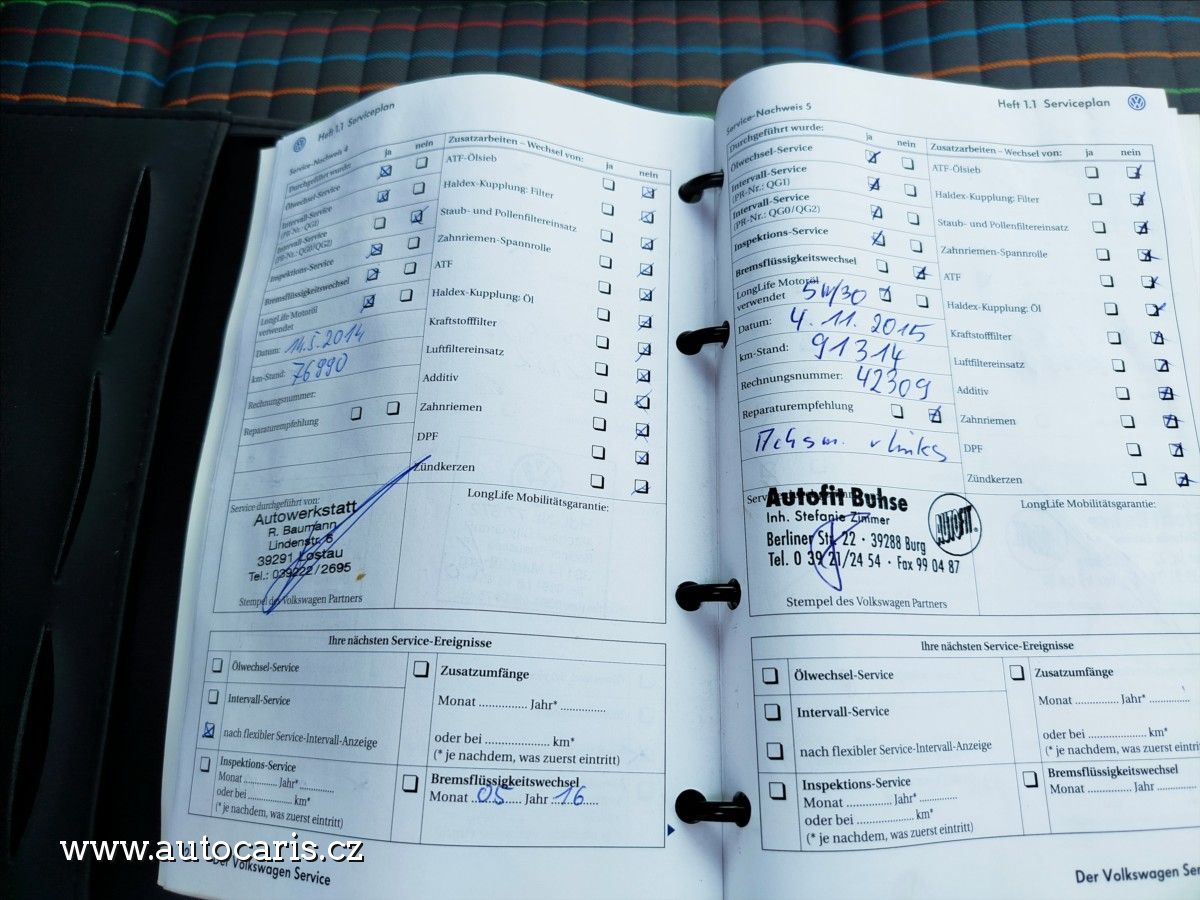 Heft 1.1 Serviceplan
Service-Nachweis 4
Durchgeführt wurde: ja nein
Ölwechsel-Service
Intervall-Service
(PR-Nr.: QG1)
Intervall-Service
(PR-Nr.: QG0/QG2)
Inspektions-Service
Bremsflüssigkeitswechsel
LongLife Motoröl
verwendet
Datum: 14.5.2014
km-Stand: 76990
Rechnungsnummer:
Reparaturempfehlung
Zusatzarbeiten – Wechsel von: ja nein
ATF-Ölsieb
Haldex-Kupplung: Filter
Staub- und Pollenfiltereinsatz
Zahnriemen-Spannrolle
ATF
Haldex-Kupplung: Öl
Kraftstofffilter
Luftfiltereinsatz
Additiv
Zahnriemen
DPF
Zündkerzen
Service durchgeführt von:
Autowerkstatt
R. Baumann
Lindenstr. 6
39291 Lostau
Tel.: 039222/2695
Stempel des Volkswagen Partners
LongLife Mobilitätsgarantie:
Ihre nächsten Service-Ereignisse
Ölwechsel-Service
Intervall-Service
nach flexibler Service-Intervall-Anzeige
Inspektions-Service
Monat .............. Jahr* ..............
oder bei .................... km*
(* je nachdem, was zuerst eintritt)
Zusatzumfänge
Monat .............. Jahr* ..............
oder bei .................... km*
(* je nachdem, was zuerst eintritt)
Bremsflüssigkeitswechsel
Monat 05 Jahr 16
Der Volkswagen Service
Service-Nachweis 5
Heft 1.1 Serviceplan
Durchgeführt wurde: ja nein
Ölwechsel-Service
Intervall-Service
(PR-Nr.: QG1)
Intervall-Service
(PR-Nr.: QG0/QG2)
Inspektions-Service
Bremsflüssigkeitswechsel
LongLife Motoröl
verwendet 5W/30
Datum: 4.11.2015
km-Stand: 91314
Rechnungsnummer: 42309
Reparaturempfehlung
Zusatzarbeiten – Wechsel von: ja nein
ATF-Ölsieb
Haldex-Kupplung: Filter
Staub- und Pollenfiltereinsatz
Zahnriemen-Spannrolle
ATF
Haldex-Kupplung: Öl
Kraftstofffilter
Luftfiltereinsatz
Additiv
Zahnriemen
DPF
Zündkerzen
Autofit Buhse
Inh. Stefanie Zimmer
Berliner Str. 22 · 39288 Burg
Tel. 0 39 21/24 54 · Fax 99 04 87
AUTOFIT
Stempel des Volkswagen Partners
LongLife Mobilitätsgarantie:
Ihre nächsten Service-Ereignisse
Ölwechsel-Service
Intervall-Service
nach flexibler Service-Intervall-Anzeige
Inspektions-Service
Monat .............. Jahr* ..............
oder bei .................... km*
(* je nachdem, was zuerst eintritt)
Zusatzumfänge
Monat .............. Jahr* ..............
oder bei .................... km*
(* je nachdem, was zuerst eintritt)
Bremsflüssigkeitswechsel
Monat .............. Jahr ..............
Der Volkswagen Ser
www.autocaris.cz